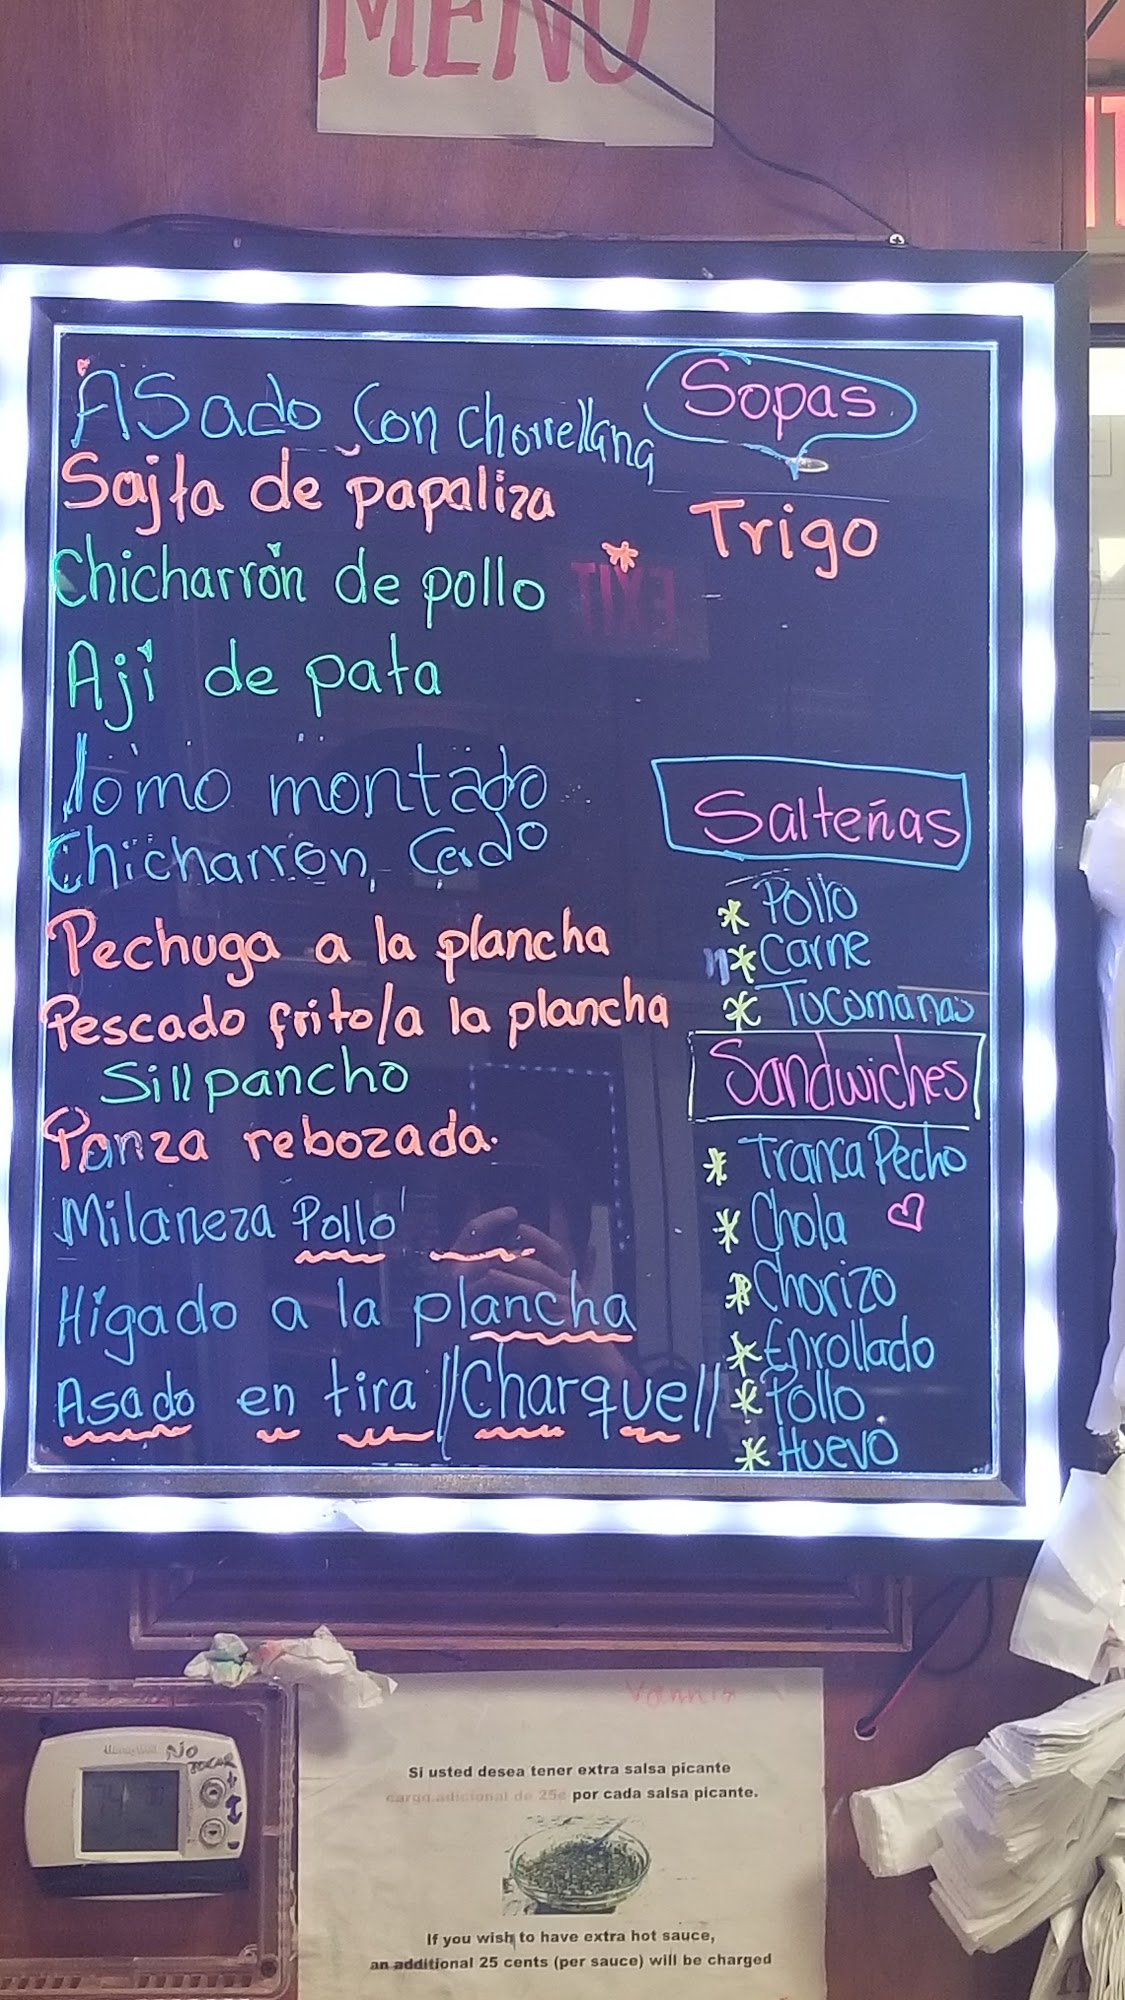 MENU
Asado Con Chorrellana
Sajta de papaliza
Chicharrón de pollo
Aji de pata
lomo montado
Chicharron, Cerdo
Pechuga a la plancha
Pescado frito/a la plancha
Sillpancho
Panza rebozada.
Milaneza Pollo
Higado a la plancha
Asado en tira //Charque//
Sopas
* Trigo
EXIT
Salteñas
* Pollo
* Carne
* Tucomanas
Sandwiches
* Tranca Pecho
* Chola
* Chorizo
* Enrollado
* Pollo
* Huevo
Honeywell
NO
TOCAR
Si usted desea tener extra salsa picante
cargo adicional de 25¢ por cada salsa picante.
If you wish to have extra hot sauce,
an additional 25 cents (per sauce) will be charged